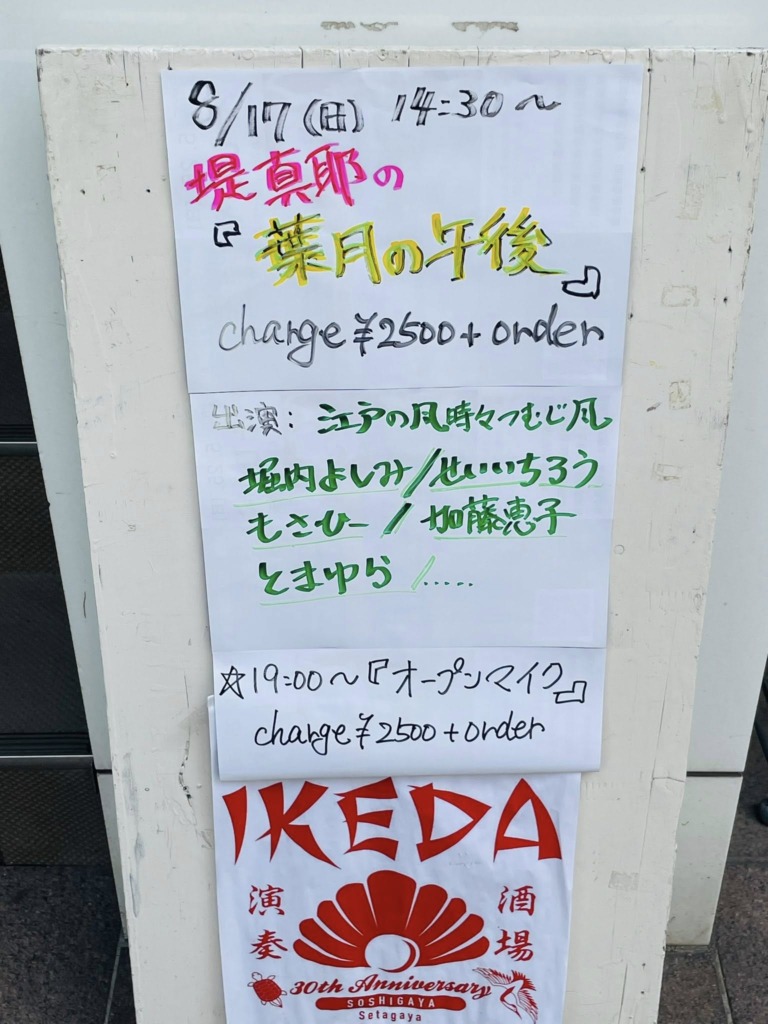 8/17(日) 14:30〜
堤真耶の
『葉月の午後』
charge ¥2500 + order
出演: 江戸の風時々つむじ風
堀内よしみ/せいいちろう
もさひー / 加藤恵子
とまゆら /.....
☆19:00〜『オープンマイク』
charge ¥2500 + order
IKEDA
演奏 酒場
30th Anniversary
SOSHIGAYA
Setagaya